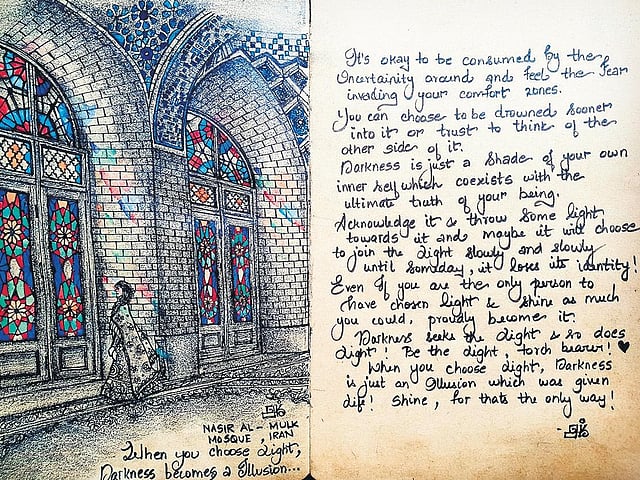 NASIR AL-MULK
MOSQUE, IRAN
When you choose Light,
Darkness becomes a Illusion...
It's okay to be consumed by the
Uncertainity around and feel the Fear
invading your comfort zones.
You can choose to be drowned sooner
into it or trust to think of the
other side of it.
Darkness is just a Shade of your own
inner self which coexists with the
ultimate truth of your being.
Acknowledge it & throw some light
towards it and maybe it will choose
to join the Light slowly and slowly
until someday, it loses its identity!
Even If you are the only person to
have chosen light & shine as much
you could, proudly become it.
Darkness seeks the Light & so does
Light! Be the Light, torch bearer! ♥
When you choose Light, Darkness
is just an Illusion which was given
life! Shine, for thats the only way!